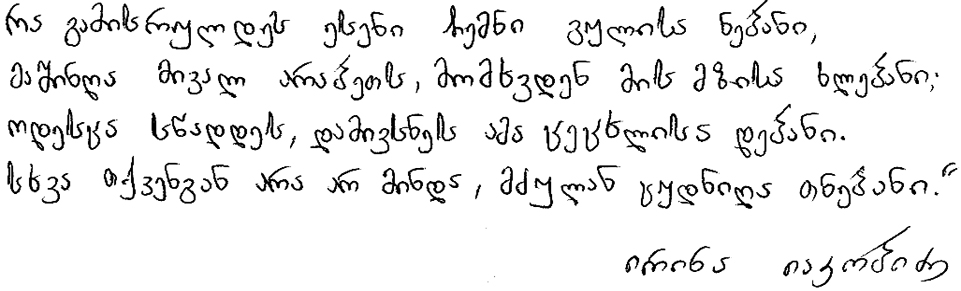 რა გამისრულდეს ესენი ჩემნი გულისა ნებანი,
მაშინღა მივალ არაბეთს, მომხვდენ მის მზისა ხლებანი;
ოდესცა სწადდეს, დამივსნეს ამა ცეცხლისა დებანი.
სხვა თქვენგან არა არ მინდა, მძულან ცუდნიღა თნებანი.“
ირინა იაკობიძე